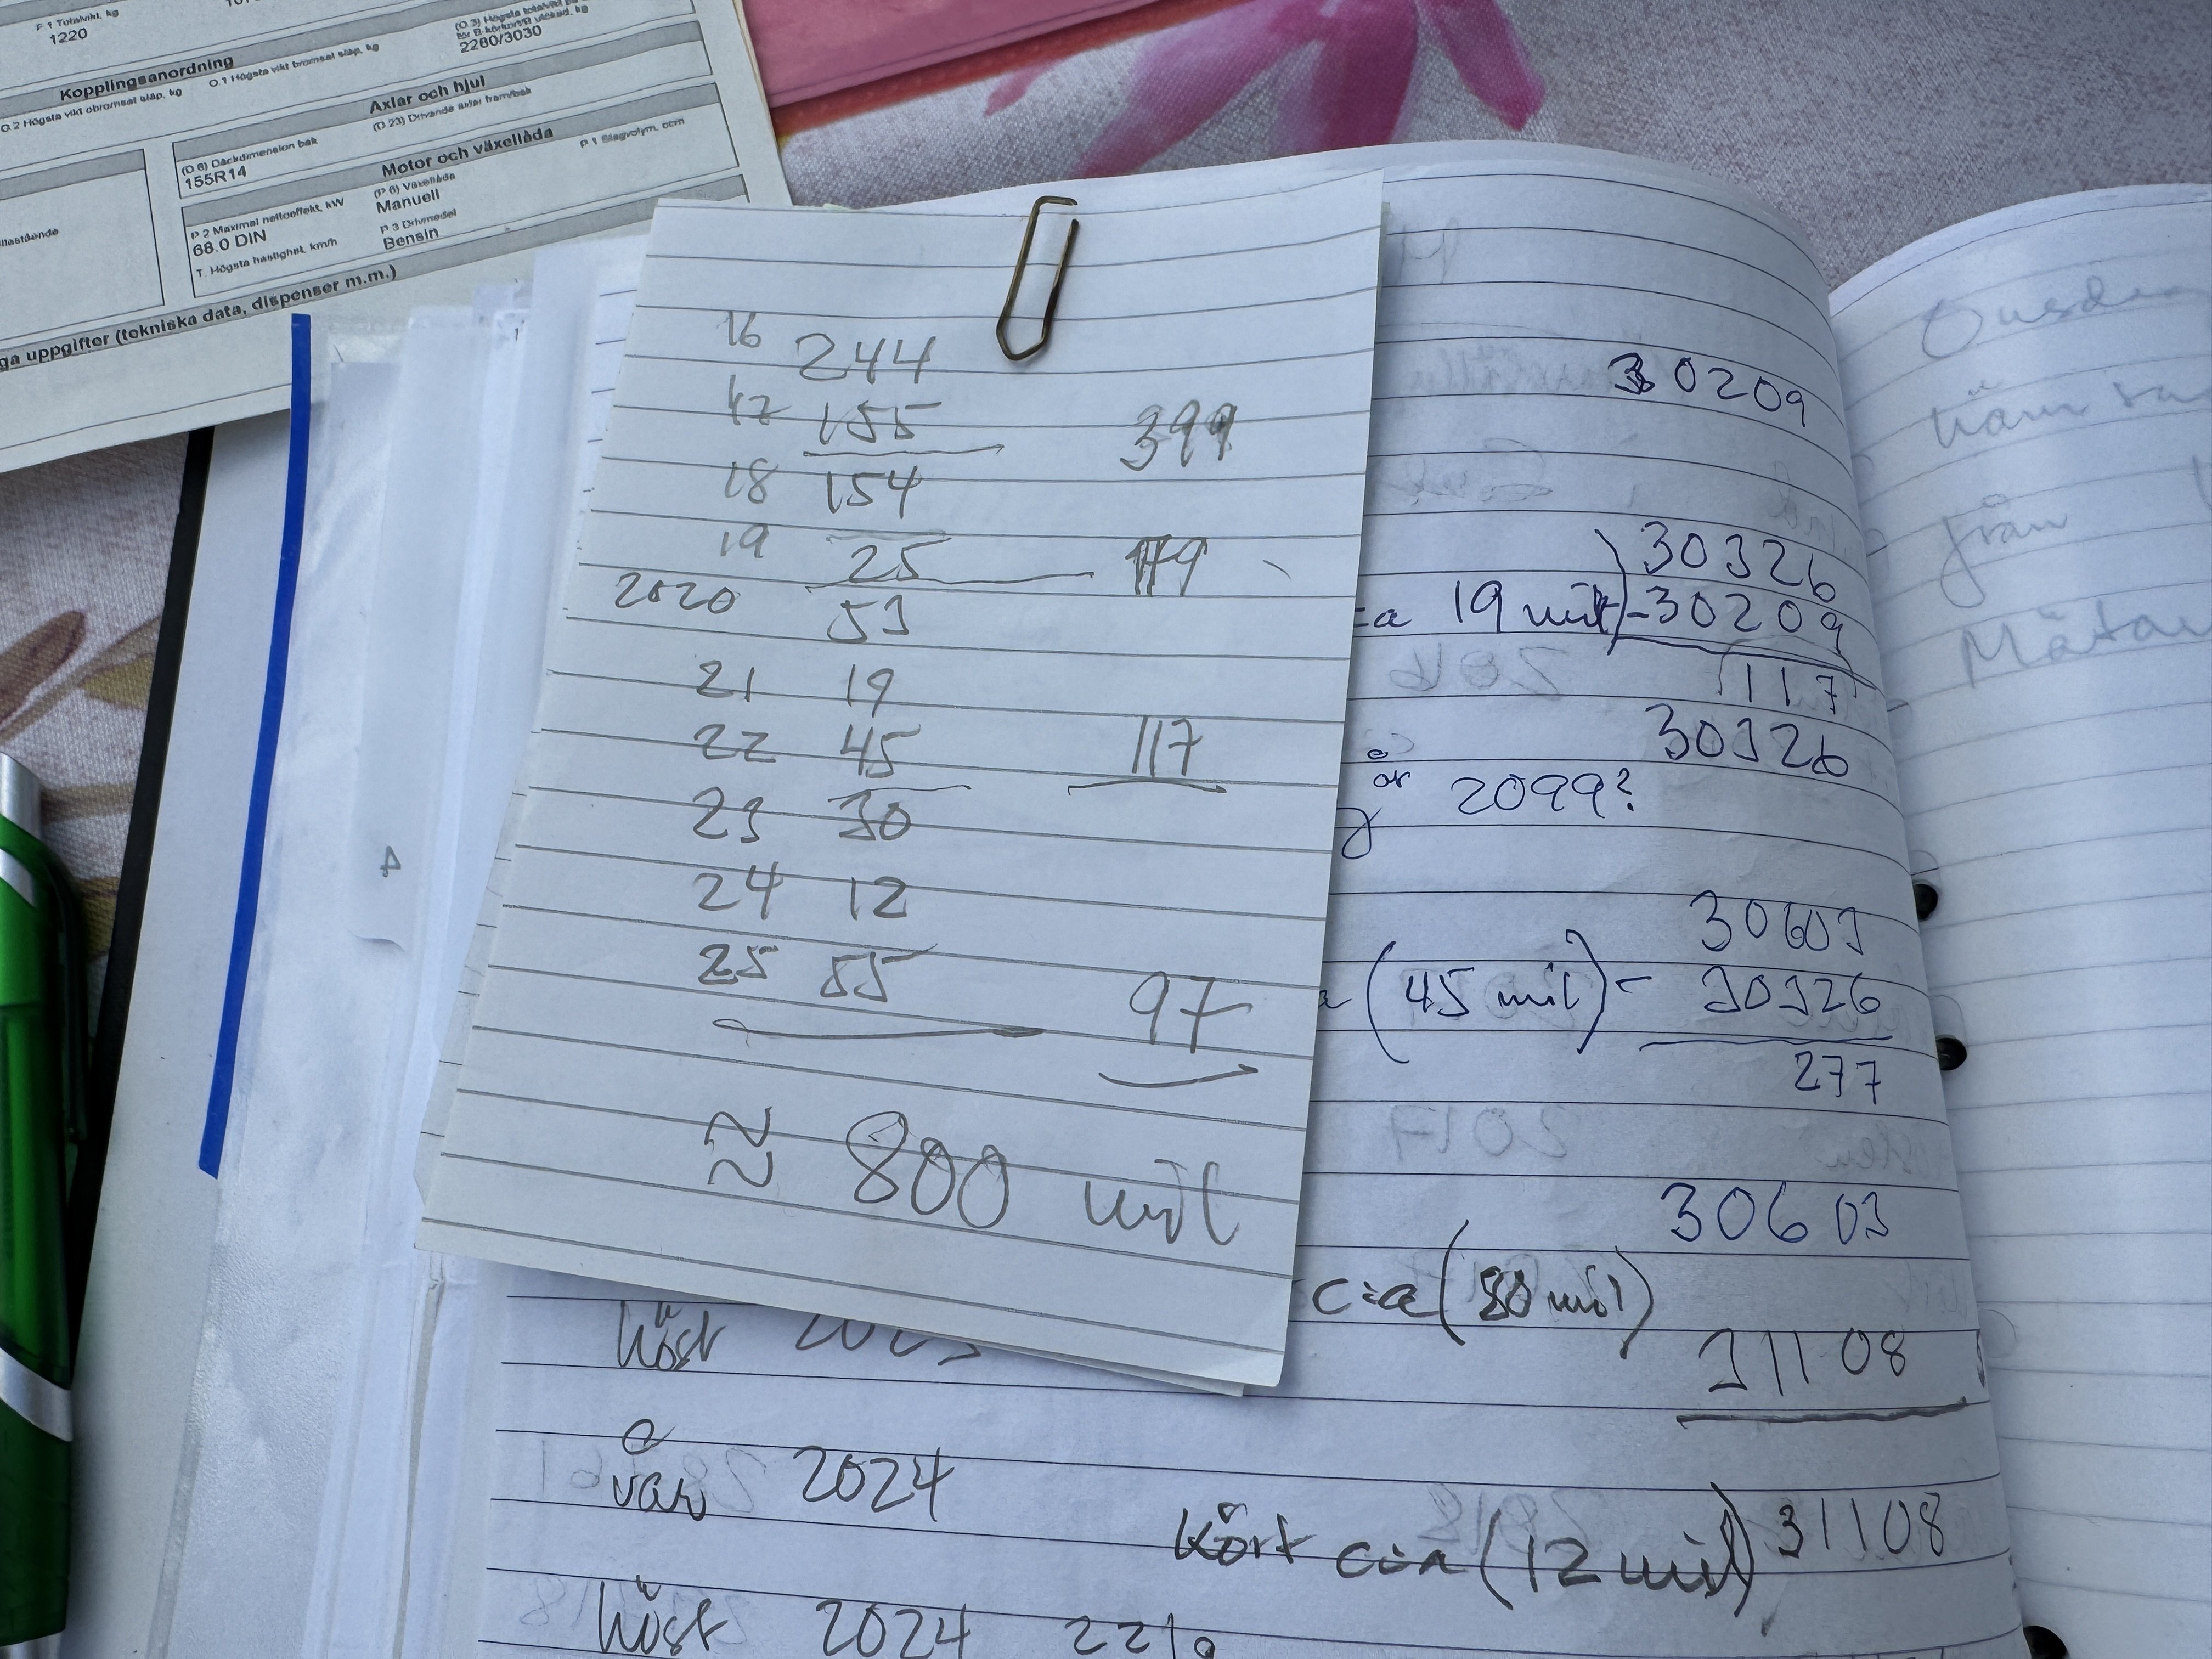 F 1 Totalvikt, kg
1220
för B-körkort/B utökad, kg
2280/3030
Kopplingsanordning
O 2 Högsta vikt obromsat släp, kg O 1 Högsta vikt bromsat släp, kg
Axlar och hjul
(D 8) Däckdimension bak (D 23) Drivande axlar fram/bak
155R14
Motor och växellåda
P 2 Maximal nettoeffekt, kW (P 6) Växellåda P 1 Slagvolym, ccm
68.0 DIN Manuell
T. Högsta hastighet, km/h P 3 Drivmedel
Bensin
ga uppgifter (tekniska data, dispenser m.m.)
16 244
17 155 399
18 154
19 25 179
2020 53
21 19
22 45 117
23 30
24 12
25 55 97
≈ 800 mil
30209
30326
ca 19 mil) -30209
117
30326
år 2099?
30603
(45 mil) - 30326
277
30603
ca (50 mil)
höst 2023
31108
vår 2024
Kört ca (12 mil) 31108
höst 2024
från
4